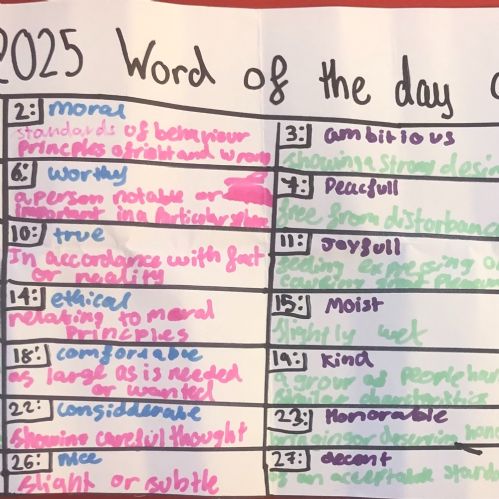 2025 Word of the day
2: moral
standards of behaviour
Princples of right and wrong
3: ambitious
showing a strong desire
6: worthy
a person notable or
important in a Particular
7: Peacefull
free from disturbance
10: true
In accordance with fact
or reality
11: Joyfull
expressing
14: ethical
relating to moral
Princples
15: Moist
Slightly wet
18: comfortable
as large as is needed
or wanted
19: Kind
a group of People
22: considderate
Showing careful thought
23: Honorable
26: nice
Slight or subtle
27: decent
of an acceptable